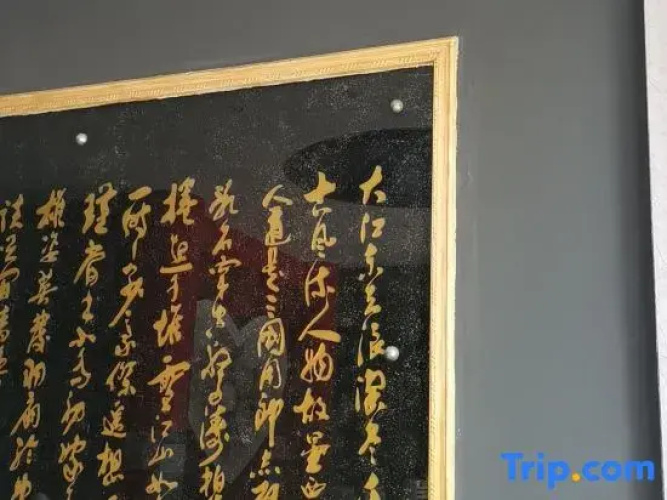 大江东去浪淘尽千
古风流人物故垒西
人道是三國周郎赤
乱石穿空惊涛拍
捲起千堆雪江山如
一时多少豪傑遥想
瑾當年小乔初嫁
雄姿英發羽扇
談笑間
Trip.com